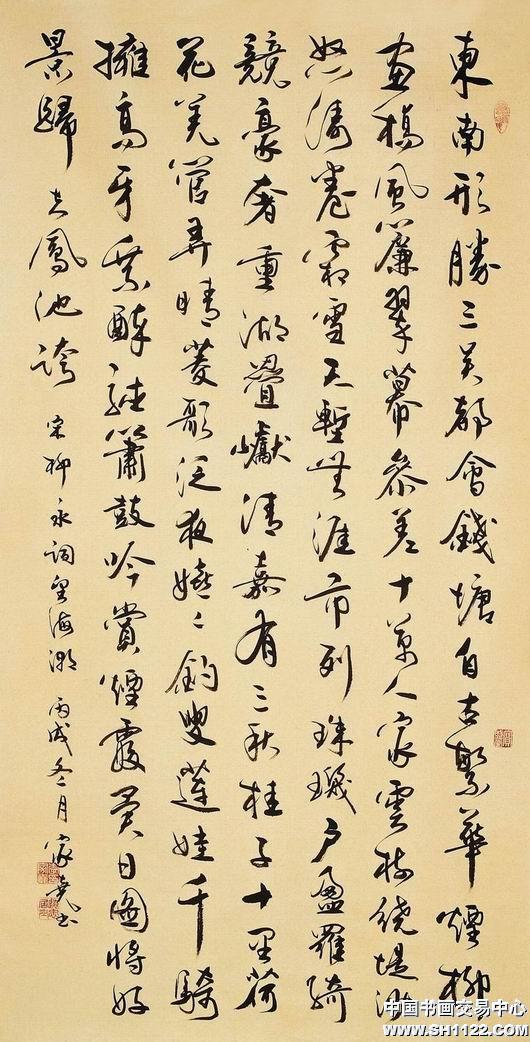 東南形勝三吳都會錢塘自古繁華煙柳
畫橋風簾翠幕參差十萬人家雲樹繞堤沙
怒濤卷霜雪天塹無涯市列珠璣戶盈羅綺
競豪奢重湖疊巘清嘉有三秋桂子十里荷
花羌管弄晴菱歌泛夜嬉々釣叟蓮娃千騎
擁高牙乘醉聽簫鼓吟賞煙霞異日圖將好
景歸去鳳池誇
宋柳永詞望海潮丙戌冬月家堯书
中国书画交易中心
WWW.SH1122.COM